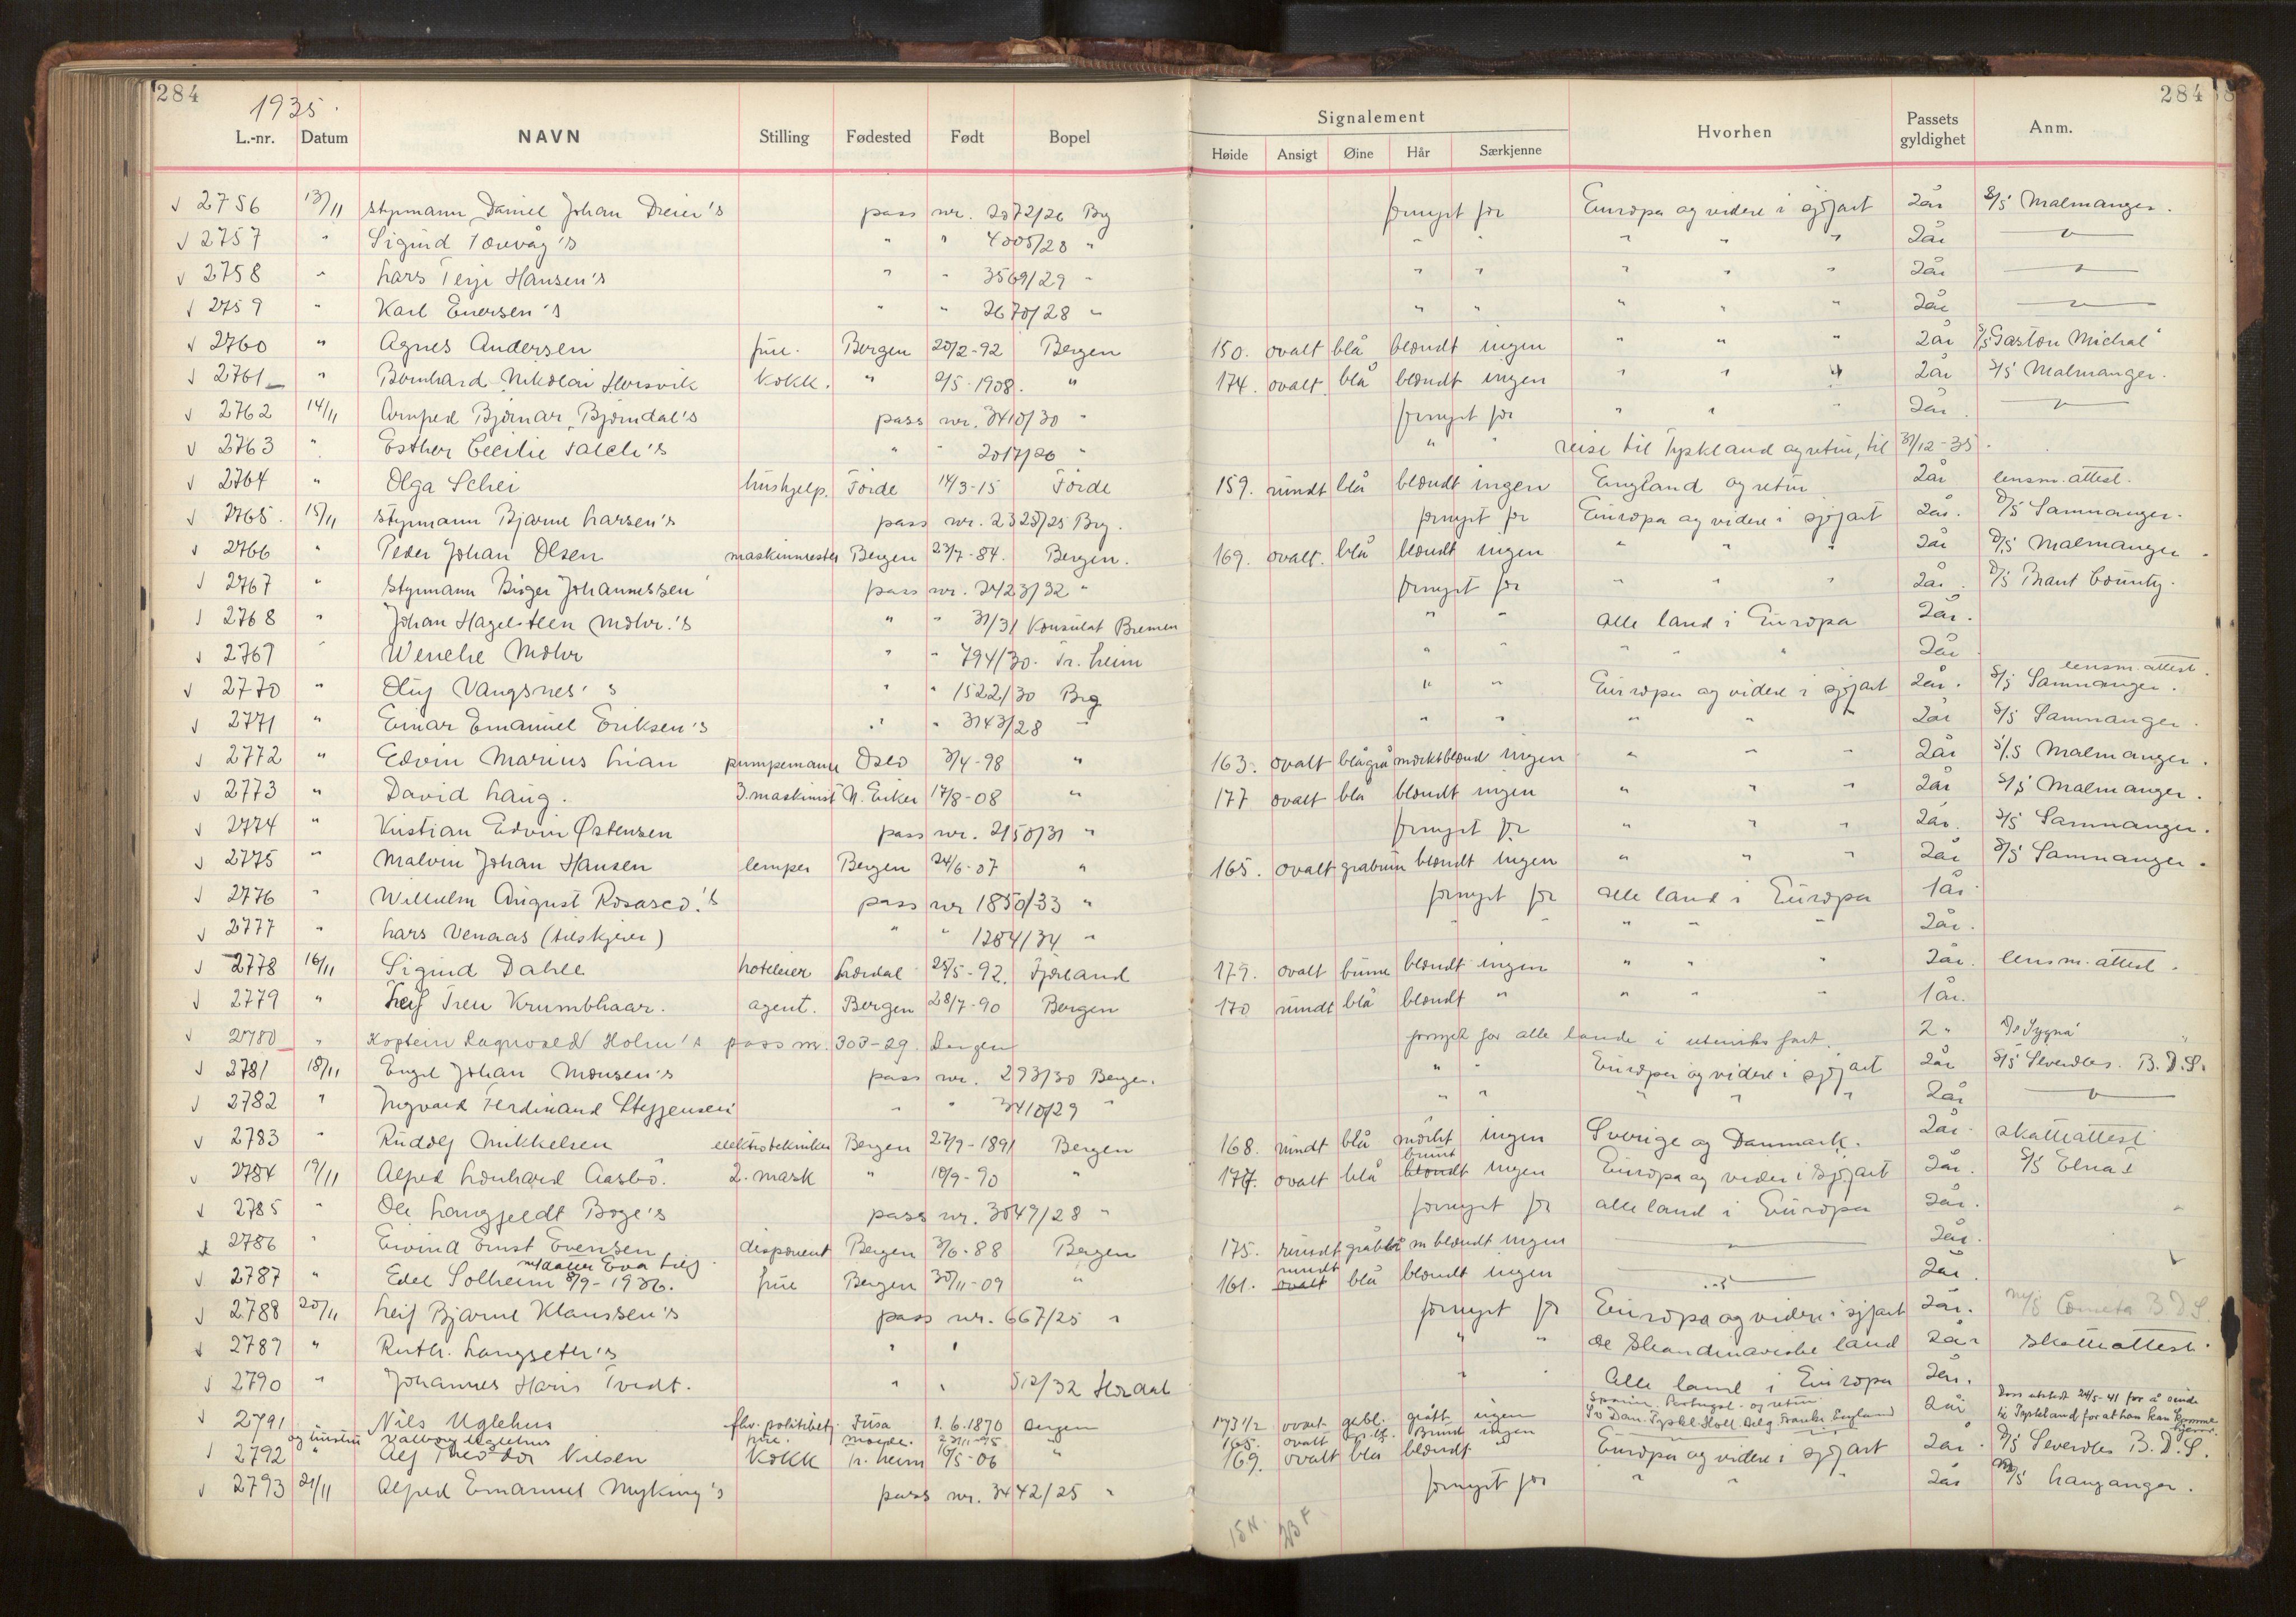 284 284
1935.
Signalement
L.-nr. Datum NAVN Stilling Fødested Født Bopel Høide Ansigt Øine Hår Særkjenne Hvorhen Passets gyldighet Anm.
2756 13/11 styrmann Daniel Johan Dreier's pass nr. 2072/26 Brg fornyet for Europa og videre i sjøfart 2år S/S Malmanger.
2757 " Sigurd " " 4005/28 " " " " " " 2år
2758 " Lars Terje Hansen's " " 3569/29 " " " " " " 2år
2759 " Karl Enersen's " " 2670/28 " " " " " " 2år
2760 " Agnes Andersen frue. Bergen 20/2-92 Bergen 150. ovalt blå blondt ingen " " " 2år S/S "Gaston Michal"
2761 " Bernhard Nikolai Horsvik kokk. " 2/5-1908. " 174. ovalt blå blondt ingen " " " 2år S/S Malmanger.
2762 14/11 Arnfred Bjørnar Bjørndal's pass nr. 3410/30 " fornyet for " " " 2år.
2763 " Esther Cecilie " " 2017/26 " " " reise til Tyskland og retur, til 31/12-35.
2764 " Olga Schei hushjelp. Førde 14/3-15 Førde 159. rundt blå blondt ingen England og retur 2år lensm. attest.
2765. 15/11 styrmann Bjarne Larsen's pass nr. 2325/25 Brg. fornyet for Europa og videre i sjøfart 2år. D/S Samnanger.
2766 " Peder Johan Olsen maskinmester Bergen 23/7-84. Bergen. 169. ovalt. blå blondt ingen " " " 2år D/S Malmanger.
2767 " styrmann Birger Johannessen' pass nr. 2423/32 " fornyet for " " " 2år. D/S Brant County.
2768 " Johan Hagelsteen Mohr.'s " " 31/31 Konsulat Bremen " " alle land i Europa 2år.
2769 " Wenche Mohr " " 794/30. Tr.heim " " " " " 2år
2770 " Oluf Vangsnes's " " 1522/30 Brg " " Europa og videre i sjøfart 2år. lensm. attest. S/S Samnanger.
2771 " Einar Emanuel Eriksen's " " 3143/28 " " " " " " 2år S/S Samnanger.
2772 " Edvin Marius Lian pumpemann Oslo 3/4-98 " 163. ovalt blågrå mørktblond ingen " " " 2år S/S Malmanger.
2773 " David Laug. 3.maskinist N. Eiker 17/8-08 " 177 ovalt blå blondt ingen " " " 2år S/S Malmanger.
2774 " Kristian Edvin Østensen pass nr. 2150/31 " fornyet for " " " 2år. S/S Samnanger.
2775 " Malvin Johan Hansen lemper Bergen 24/6-07 " 165. ovalt gråbrun blondt ingen " " " 2år S/S Samnanger.
2776 " Wilhelm August pass nr 1850/33 " fornyet for alle land i Europa 1år.
2777 " Lars Venaas (tilskjerer) " " 1284/34 " " " " " " 2år.
2778 16/11 Sigurd Dahle hoteleier Lærdal 25/5-92. Fjærland 179. ovalt brune blondt ingen " " " 2år. lensm. attest.
2779 " Leif Treu Krumbhaar. agent. Bergen 28/7-90 Bergen 170 rundt blå blondt " " " " 1år.
2780 " Kaptein Ragnvald Holm's pass nr. 303-29. Bergen fornyet for alle lande i utenriks fart. 2 " D/S Sygna
2781 18/11 Engel Johan Monsen's pass nr. 293/30 Bergen. " " Europa og videre i sjøfart 2år S/S Leverdles. B.D.S.
2782 " Ingvard Ferdinand Steffensen' " " 3410/29 " " " " " " 2år
2783 " Rudolf Mikkelsen elektrotekniker Bergen 27/9-1891 Bergen 168. rundt blå mørkt ingen Sverige og Danmark. 2år. skatteattest
2784 19/11 Alfred Leonhard Aasbø. 2. mask " 19/9-90 " 177. ovalt blå blondt brunt ingen Europa og videre i sjøfart 2år. S/S Elna E
2785 " Ole Langfeldt Boge's pass nr. 3049/28 " fornyet for alle land i Europa 2år.
2786 " Eivind Ernst Evensen disponent Bergen 3/6-88 Bergen 175. rundt gråblå m blondt ingen 2år.
m/datter Eva
2787 " Edel Solheim 8/9-1936. frue Bergen 30/11-09 " 161. ovalt rundt blå blondt ingen 2år.
2788 20/11 Leif Bjarne Klaussen's pass nr. 667/25 " fornyet for Europa og videre i sjøfart 2år. M/S Cometa B.D.S.
2789 " Ruth. Langseth's " " " " de Skandinaviske land 2år skatteattest.
2790 " Johannes Haris Tvedt. " " 512/32 Hordal. " " Alle land i Europa 2år.
2791 Nils Uglehus fhv. politibetj. Fusa 1.6.1870 Bergen 173 1/2 ovalt gråbl. grått ingen Spania, Portugal og retur 2år Pass utstedt 24/5-41 for å sende
og hustru Valborg Uglehus frue. Molde. " 165. ovalt brunt ingen Sv Dan. Tyskl. Holl. Belg. Frankr. England til Tyskland for at han kan komme hjem.
2792 " Alf Theodor Nilsen kokk Tr.heim 16/5-06 " 169. ovalt blå blondt " Europa og videre i sjøfart 2år. D/S Leverdles B.D.S.
2793 21/11 Alfred Emanuel Myking's pass nr. 3442/25 " fornyet for " " " 2år M/S Hauganger.
15 N. 23 F